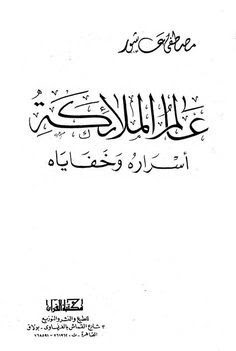 مصطفى عاشور
عالم الملائكة
أسراره وخفاياه
مكتبة القرآن
للطبع والنشر والتوزيع
٣ شارع القماش بالفرنساوى - بولاق
القاهرة - ت